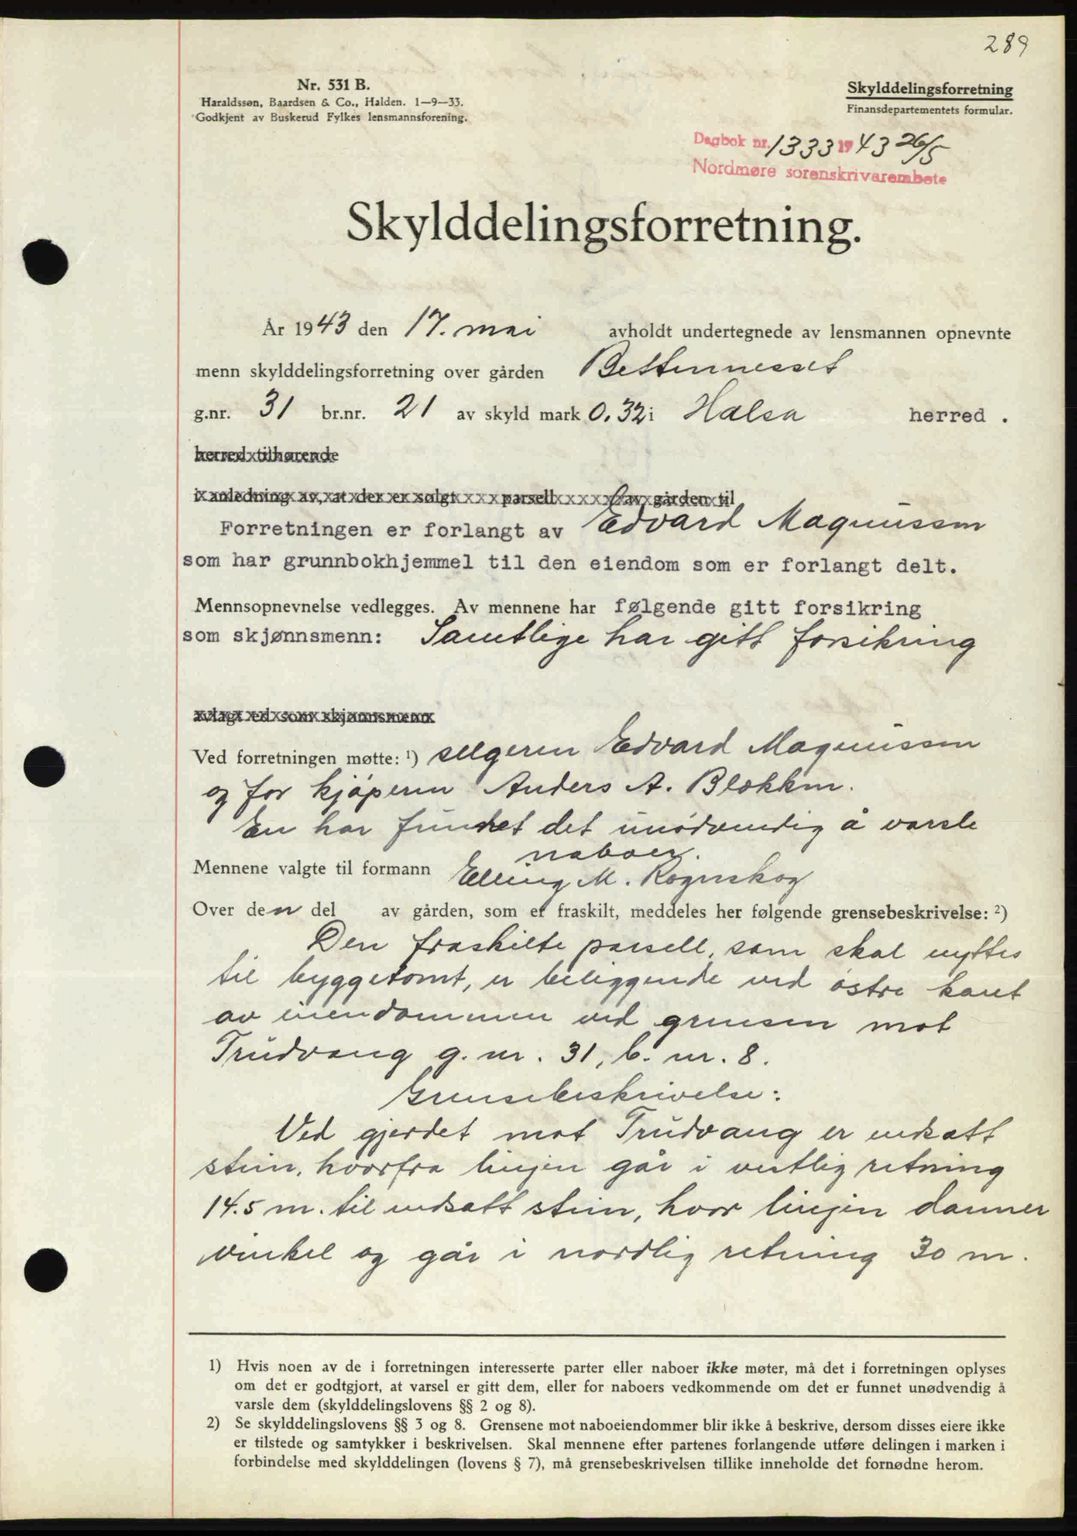 289
Nr. 531 B.
Haraldssøn, Baardsen & Co., Halden. 1—9—33.
Godkjent av Buskerud Fylkes lensmannsforening.
Skylddelingsforretning
Finansdepartementets formular.
Dagbok nr. 1333 1943 26/5
Nordmøre sorenskrivarembete
Skylddelingsforretning.
År 1943 den 17. mai avholdt undertegnede av lensmannen opnevnte
menn skylddelingsforretning over gården Bettennesset
g.nr. 31 br.nr. 21 av skyld mark 0.32 i Halsa herred .
herred tilhørende
i anledning av, at der er solgt parsell av gården til
Forretningen er forlangt av Edvard Magnussen
som har grunnbokhjemmel til den eiendom som er forlangt delt.
Mennsopnevnelse vedlegges. Av mennene har følgende gitt forsikring
som skjønnsmenn: Samtlige har gitt forsikring
avlagt ed som skjønnsmenn
Ved forretningen møtte: ¹) selgeren Edvard Magnussen
og for kjøperen Anders A. Blekken.
En har fundet det unødvendig å varsle
naboer.
Mennene valgte til formann Elling M. Rognskog
Over den del av gården, som er fraskilt, meddeles her følgende grensebeskrivelse: ²)
Den fraskilte parsell, som skal nyttes
til byggetomt, er beliggende ved østre kant
av eiendommen ved grensen mot
Trudvang g. nr. 31, b. nr. 8.
Grensebeskrivelse:
Ved gjerdet mot Trudvang er nedsatt
stein, hvorfra linjen går i vestlig retning
14.5 m. til nedsatt stein, hvor linjen danner
vinkel og går i nordlig retning 30 m.
1) Hvis noen av de i forretningen interesserte parter eller naboer ikke møter, må det i forretningen oplyses
om det er godtgjort, at varsel er gitt dem, eller for naboers vedkommende om det er funnet unødvendig å
varsle dem (skylddelingslovens §§ 2 og 8).
2) Se skylddelingslovens §§ 3 og 8. Grensene mot naboeiendommer blir ikke å beskrive, dersom disses eiere ikke
er tilstede og samtykker i beskrivelsen. Skal mennene efter partenes forlangende utføre delingen i marken i
forbindelse med skylddelingen (lovens § 7), må grensebeskrivelsen tillike inneholde det fornødne herom.